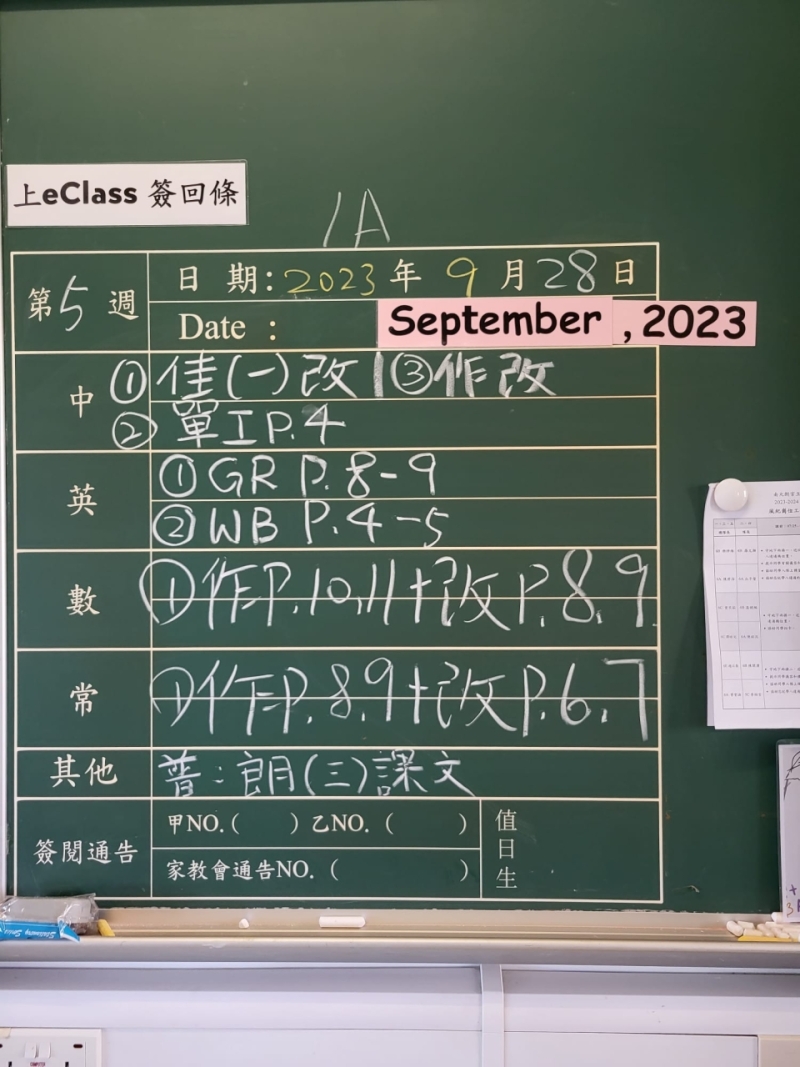 上eClass 簽回條
1A
第5週
日 期:2023年 9月28日
Date : September , 2023
中 ①佳(一)改 ③作改
②單工P.4
英 ①GR P.8-9
②WB P.4-5
數 ①作P.10,11+改P.8,9
常 ①作P.8,9+改P.6,7
其他 普:朗(三)課文
簽閱通告 甲NO.( ) 乙NO.( )
家教會通告NO.( )
值日生